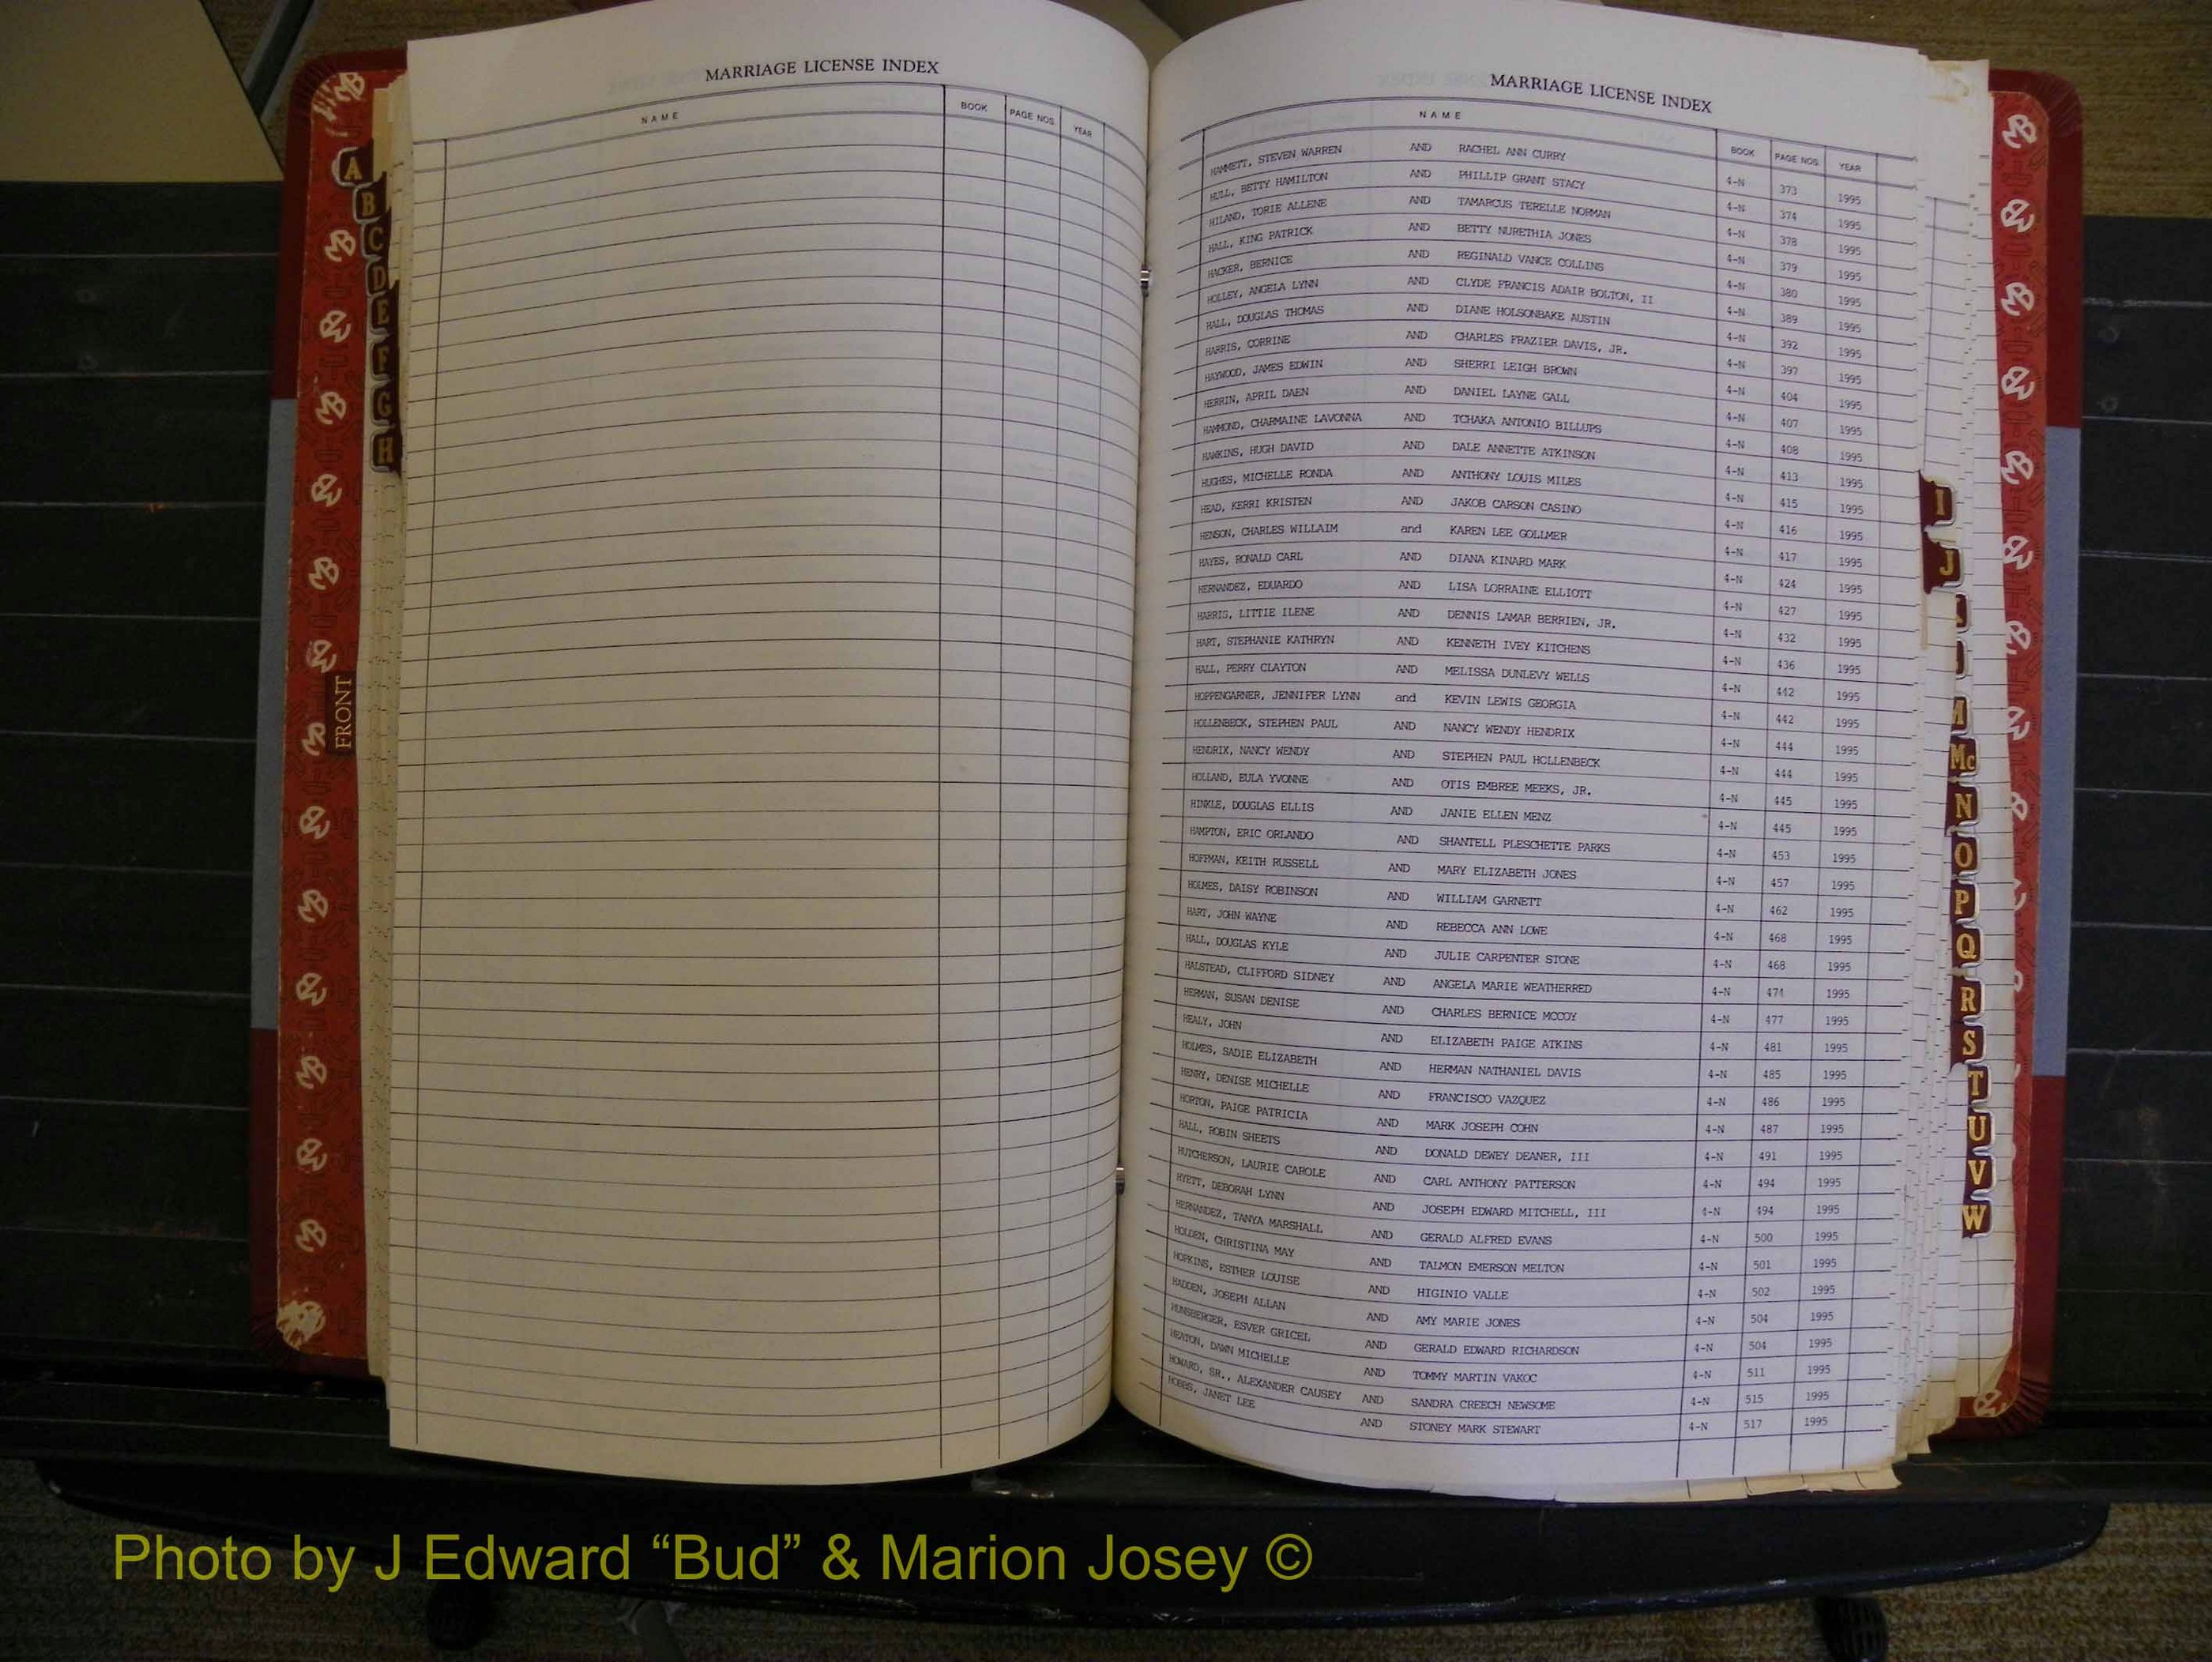 MARRIAGE LICENSE INDEX
NAME BOOK PAGE NOS. YEAR
A
B
C
D
E
F
G
H
FRONT
MARRIAGE LICENSE INDEX
NAME BOOK PAGE NOS. YEAR
HAMMETT, STEVEN WARREN AND RACHEL ANN CURRY 4-N 373 1995
HULL, BETTY HAMILTON AND PHILLIP GRANT STACY 4-N 374 1995
HILAND, TORIE ALLENE AND TAMARCUS TERELLE NORMAN 4-N 378 1995
HALL, KING PATRICK AND BETTY NURETHIA JONES 4-N 379 1995
HACKER, BERNICE AND REGINALD VANCE COLLINS 4-N 380 1995
HOLLEY, ANGELA LYNN AND CLYDE FRANCIS ADAIR BOLTON, II 4-N 389 1995
HALL, DOUGLAS THOMAS AND DIANE HOLSONBAKE AUSTIN 4-N 392 1995
HARRIS, CORRINE AND CHARLES FRAZIER DAVIS, JR. 4-N 397 1995
HAYWOOD, JAMES EDWIN AND SHERRI LEIGH BROWN 4-N 404 1995
HERRIN, APRIL DAEN AND DANIEL LAYNE GALL 4-N 407 1995
HAMMOND, CHARMAINE LAVONNA AND TCHAKA ANTONIO BILLUPS 4-N 408 1995
HAWKINS, HUGH DAVID AND DALE ANNETTE ATKINSON 4-N 413 1995
HUGHES, MICHELLE RONDA AND ANTHONY LOUIS MILES 4-N 415 1995
HEAD, KERRI KRISTEN AND JAKOB CARSON CASINO 4-N 416 1995
HENSON, CHARLES WILLAIM and KAREN LEE GOLLMER 4-N 417 1995
HAYES, RONALD CARL AND DIANA KINARD MARK 4-N 424 1995
HERNANDEZ, EDUARDO AND LISA LORRAINE ELLIOTT 4-N 427 1995
HARRIS, LITTIE ILENE AND DENNIS LAMAR BERRIEN, JR. 4-N 432 1995
HART, STEPHANIE KATHRYN AND KENNETH IVEY KITCHENS 4-N 436 1995
HALL, PERRY CLAYTON AND MELISSA DUNLEVY WELLS 4-N 442 1995
HOPPENGARNER, JENNIFER LYNN and KEVIN LEWIS GEORGIA 4-N 442 1995
HOLLENBECK, STEPHEN PAUL AND NANCY WENDY HENDRIX 4-N 444 1995
HENDRIX, NANCY WENDY AND STEPHEN PAUL HOLLENBECK 4-N 444 1995
HOLLAND, EULA YVONNE AND OTIS EMBREE MEEKS, JR. 4-N 445 1995
HINKLE, DOUGLAS ELLIS AND JANIE ELLEN MENZ 4-N 445 1995
HAMPTON, ERIC ORLANDO AND SHANTELL PLESCHETTE PARKS 4-N 453 1995
HOFFMAN, KEITH RUSSELL AND MARY ELIZABETH JONES 4-N 457 1995
HOLMES, DAISY ROBINSON AND WILLIAM GARNETT 4-N 462 1995
HART, JOHN WAYNE AND REBECCA ANN LOWE 4-N 468 1995
HALL, DOUGLAS KYLE AND JULIE CARPENTER STONE 4-N 468 1995
HALSTEAD, CLIFFORD SIDNEY AND ANGELA MARIE WEATHERRED 4-N 474 1995
HERMAN, SUSAN DENISE AND CHARLES BERNICE MCCOY 4-N 477 1995
HEALY, JOHN AND ELIZABETH PAIGE ATKINS 4-N 481 1995
HOLMES, SADIE ELIZABETH AND HERMAN NATHANIEL DAVIS 4-N 485 1995
HENRY, DENISE MICHELLE AND FRANCISCO VAZQUEZ 4-N 486 1995
HORTON, PAIGE PATRICIA AND MARK JOSEPH COHN 4-N 487 1995
HALL, ROBIN SHEETS AND DONALD DEWEY DEANER, III 4-N 491 1995
HUTCHERSON, LAURIE CAROLE AND CARL ANTHONY PATTERSON 4-N 494 1995
HYETT, DEBORAH LYNN AND JOSEPH EDWARD MITCHELL, III 4-N 494 1995
HERNANDEZ, TANYA MARSHALL AND GERALD ALFRED EVANS 4-N 500 1995
HOLDEN, CHRISTINA MAY AND TALMON EMERSON MELTON 4-N 501 1995
HOPKINS, ESTHER LOUISE AND HIGINIO VALLE 4-N 502 1995
HADDEN, JOSEPH ALLAN AND AMY MARIE JONES 4-N 504 1995
HUNSBERGER, ESVER GRICEL AND GERALD EDWARD RICHARDSON 4-N 504 1995
HEATON, DAWN MICHELLE AND TOMMY MARTIN VAKOC 4-N 511 1995
HOWARD, SR., ALEXANDER CAUSEY AND SANDRA CREECH NEWSOME 4-N 515 1995
HOBBS, JANET LEE AND STONEY MARK STEWART 4-N 517 1995
I
J
M
Mc
N
O
P
Q
R
S
T
U
V
W
Photo by J Edward “Bud” & Marion Josey ©